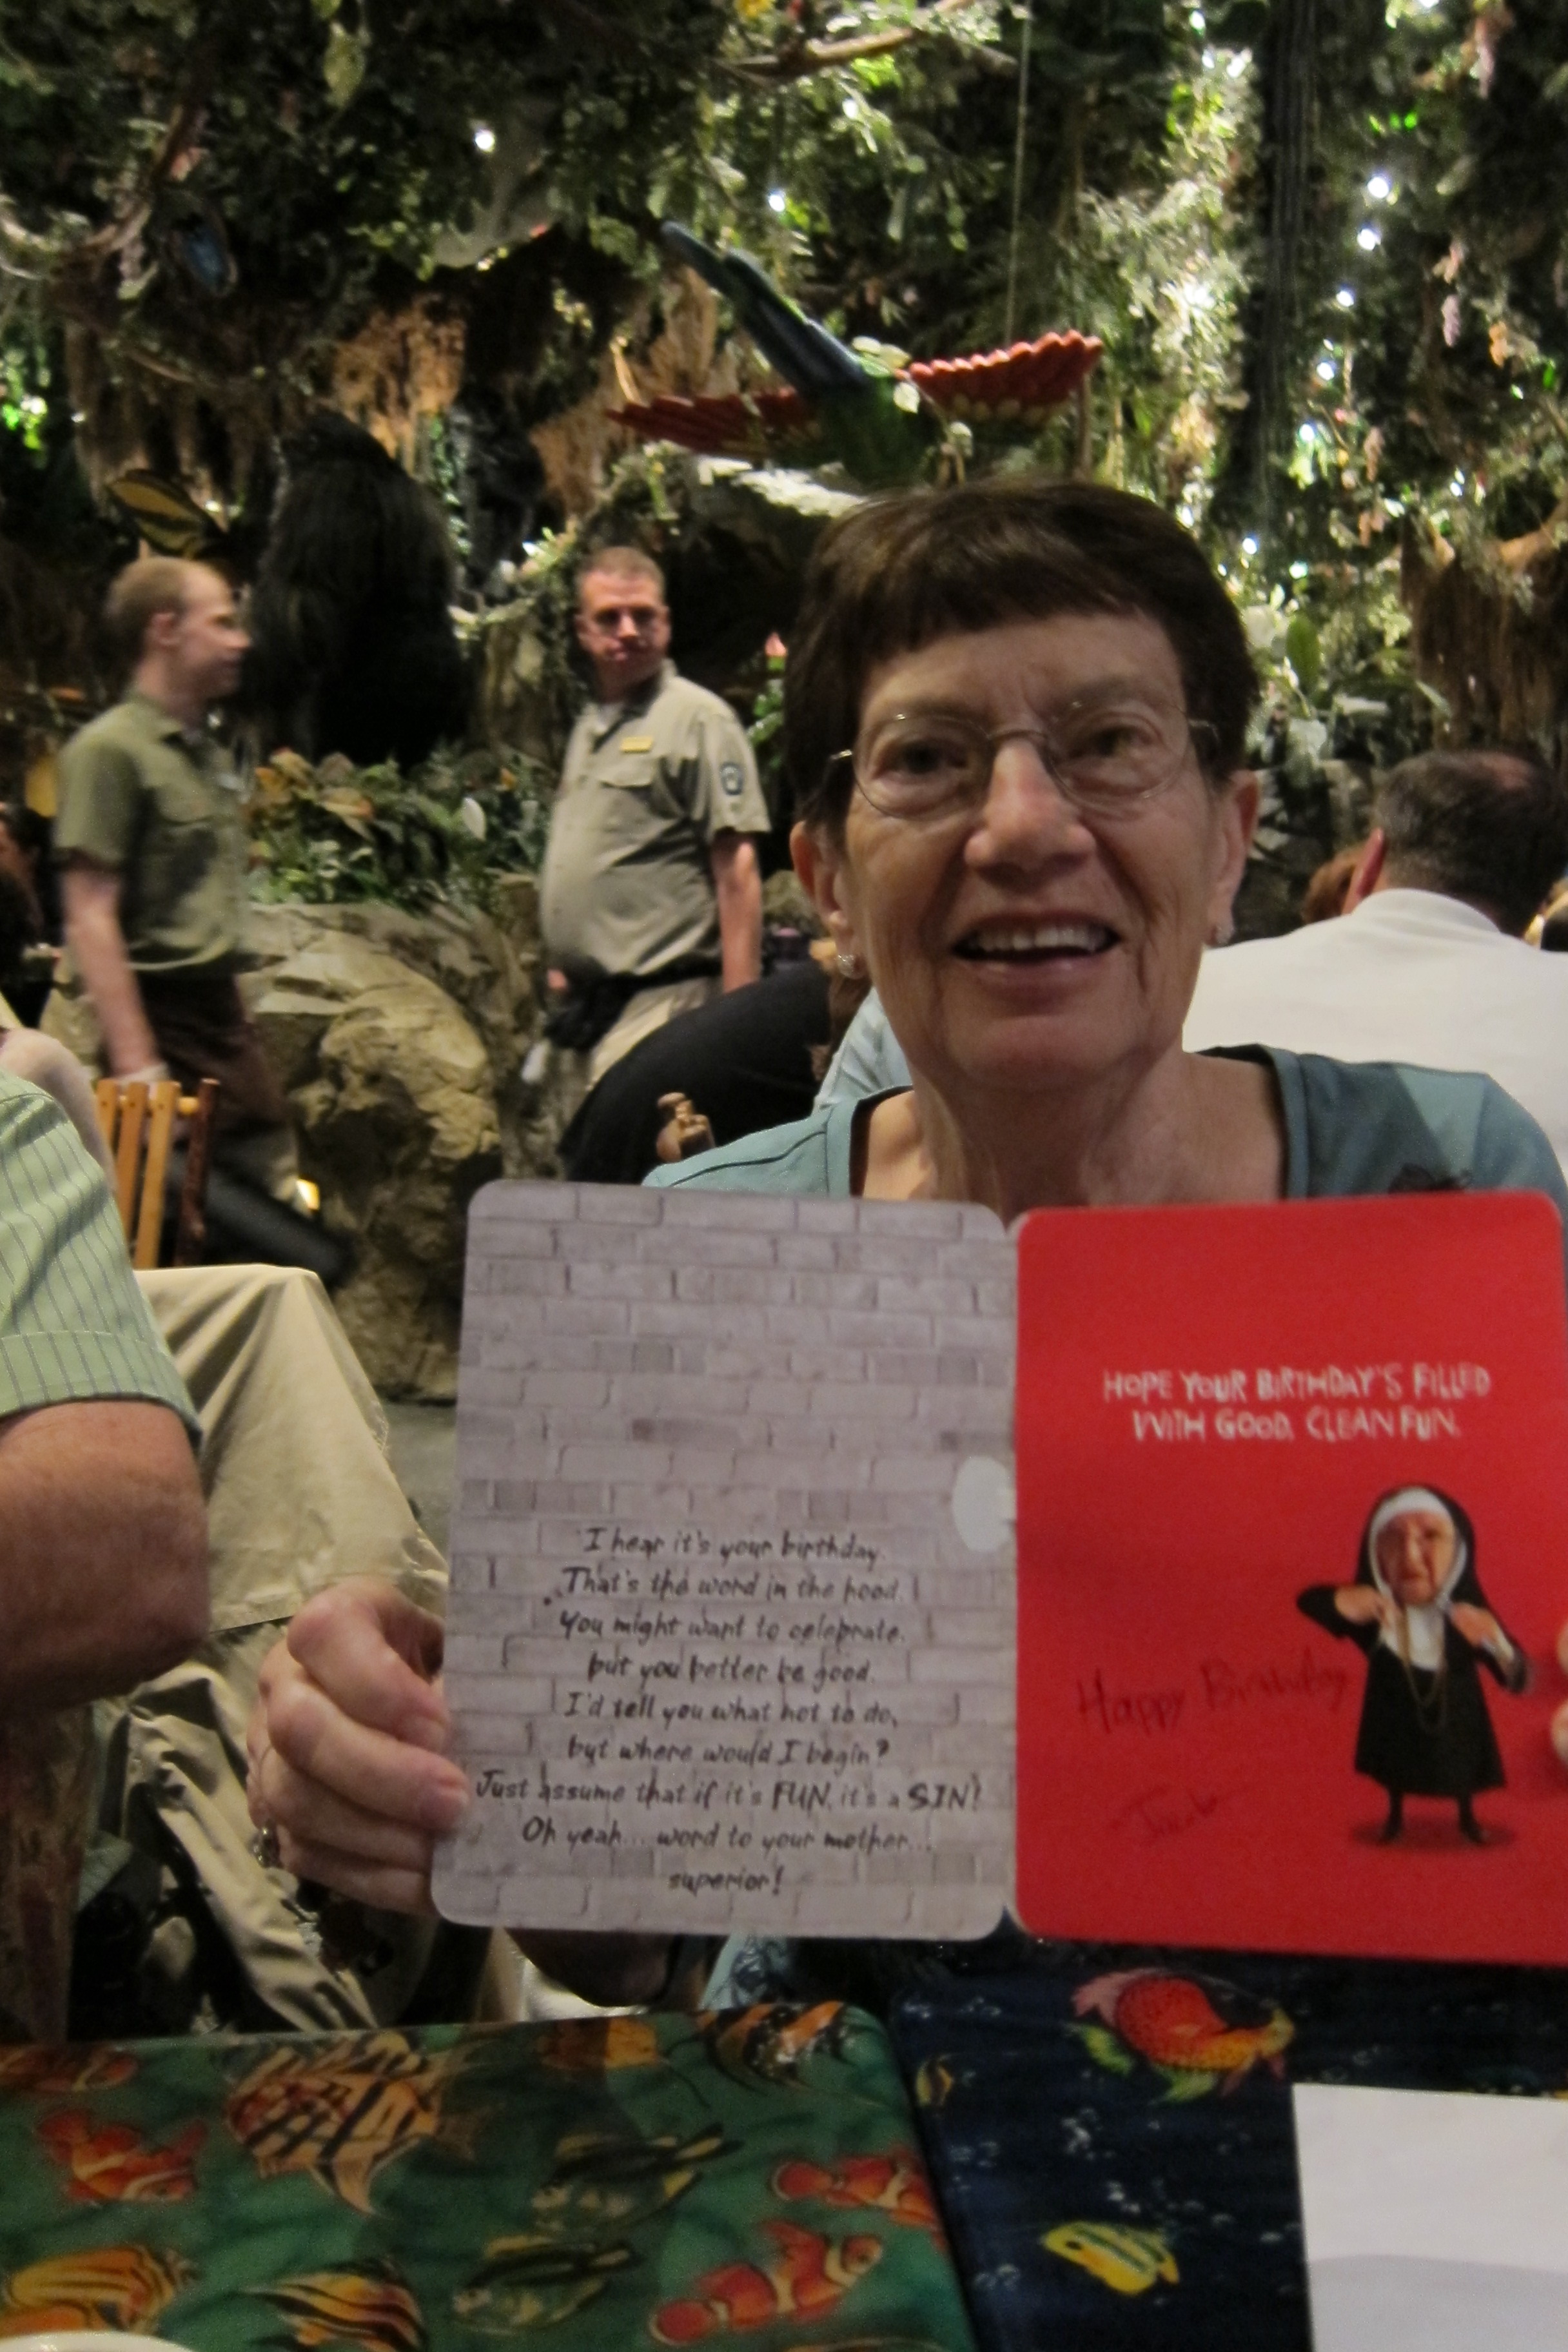 I hear it's your birthday.
That's the word in the hood.
You might want to celebrate,
but you better be good.
I'd tell you what not to do,
but where would I begin?
Just assume that if it's FUN, it's a SIN!
Oh yeah... word to your mother...
superior!
HOPE YOUR BIRTHDAY'S FILLED
WITH GOOD, CLEAN FUN.
Happy Birthday